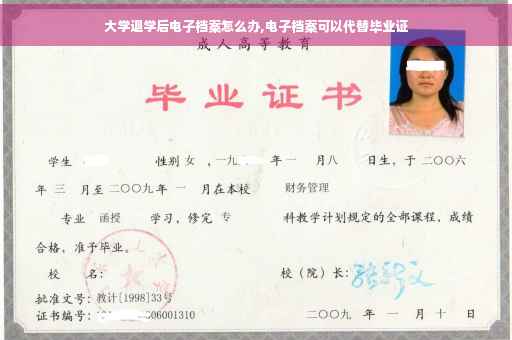 大学退学后电子档案怎么办,电子档案可以代替毕业证
成人高等教育
毕业证书
学生 性别 女 ,一九 年 一 月八 日生，于 二〇〇六
年 三 月至 二〇〇九 年 一 月在本校 财务管理
专业 函授 学习，修完 专 科教学计划规定的全部课程，成绩
合格，准予毕业。
校 名： 校（院）长：
批准文号：教计[1998]33号
证书编号：1 006001310 二〇〇九 年 一 月 十 日